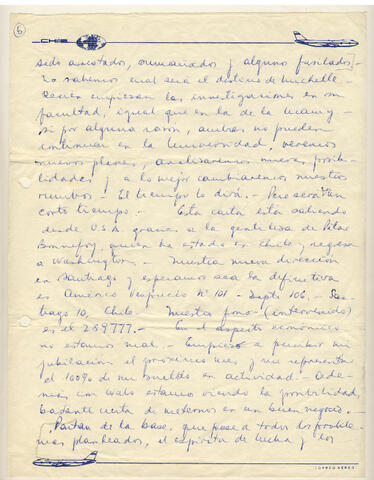 6
CHILE
sido arrestados, sumariados y alguno fusilados.-
No sabemos cual será el destino de Michelle.
Recien empiezan las investigaciones en su
facultad, igual que en la de la Mamy.-
Si por alguna razon, ambas no pueden
continuar en la Universidad, veremos
nuevos planes, analizaremos nuevas posibi-
lidades y a lo mejor cambiaremos nuestros
rumbos - El tiempo lo dirá. - Pero será tan
corto tiempo. - Esta carta esta saliendo
desde U.S.A. gracias a la gentileza de Pilar
Bonnefoy, quien ha estado en Chile y regresa
a Washington. - Nuestra nueva dirección
en Santiago y esperamos sea la definitiva
es Américo Vespucio N° 101 - Depto 106, - San-
tiago 10, Chile. - Nuestro fono (intervenido)
es el 289777. - En el aspecto económico
no estamos mal. - Empiezo a percibir mi
jubilación el proximo mes, y me representa
el 100% de mi sueldo en actividad. - Ade-
mas con estamos viendo la posibilidad,
bastante cierta de meternos en un buen negocio. -
Partan de la base, que pese a todos los proble-
mas planteados, el espíritu de lucha y los
CORREO AEREO